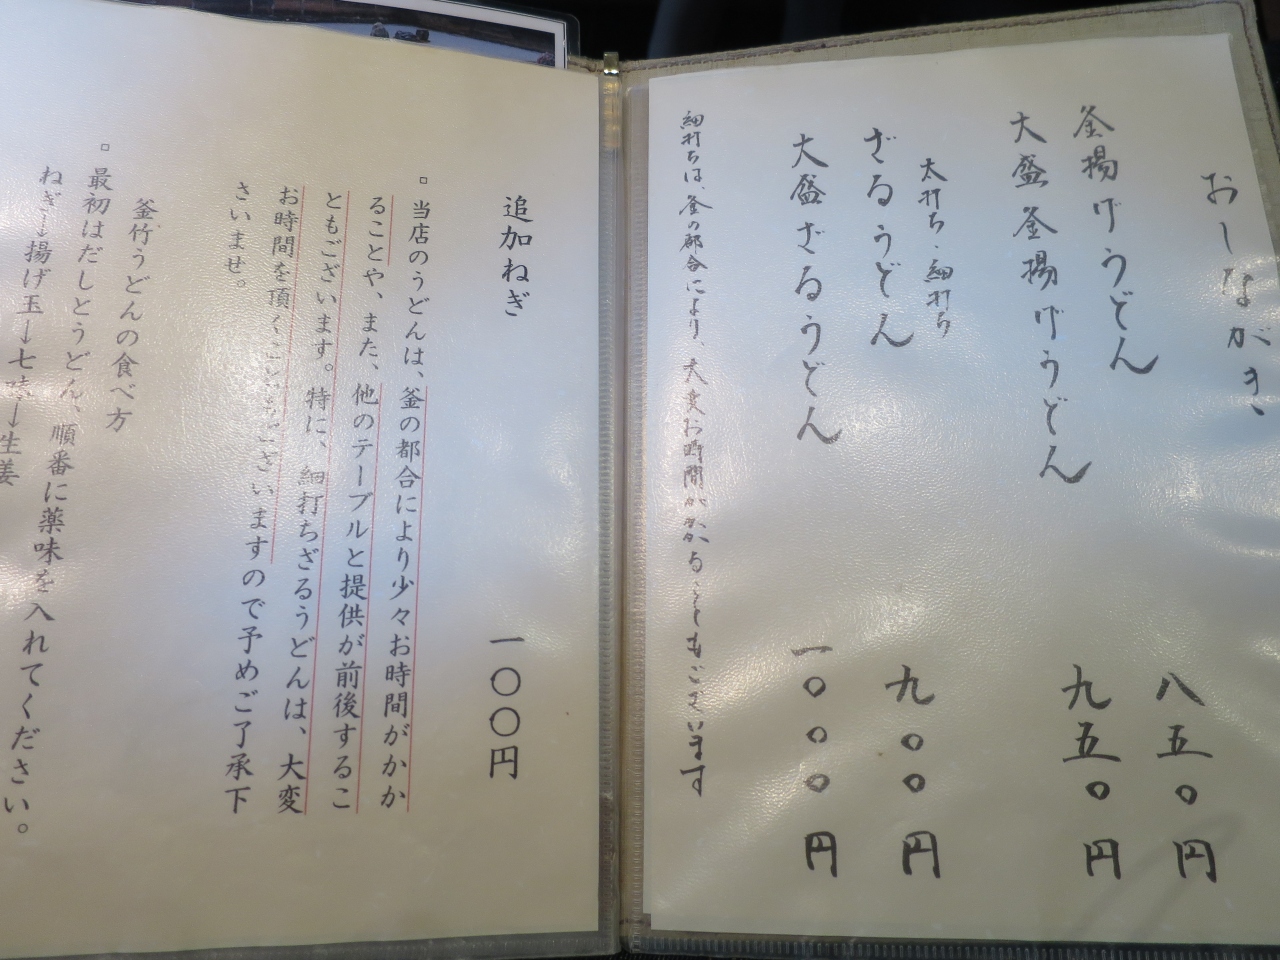 おしながき
釜揚げうどん 八五〇円
大盛釜揚げうどん 九五〇円
太打ち・細打ち
ざるうどん 九〇〇円
大盛ざるうどん 一〇〇〇円
細打ちは、釜の都合により、大変お時間がかかることもございます
追加ねぎ 一〇〇円
▫当店のうどんは、釜の都合により少々お時間がかか
ることや、また、他のテーブルと提供が前後するこ
ともございます。特に、細打ちざるうどんは、大変
お時間を頂くことがございますので予めご了承下
さいませ。
釜竹うどんの食べ方
▫最初はだしとうどん、順番に薬味を入れてください。
ねぎ→揚げ玉→七味→生姜